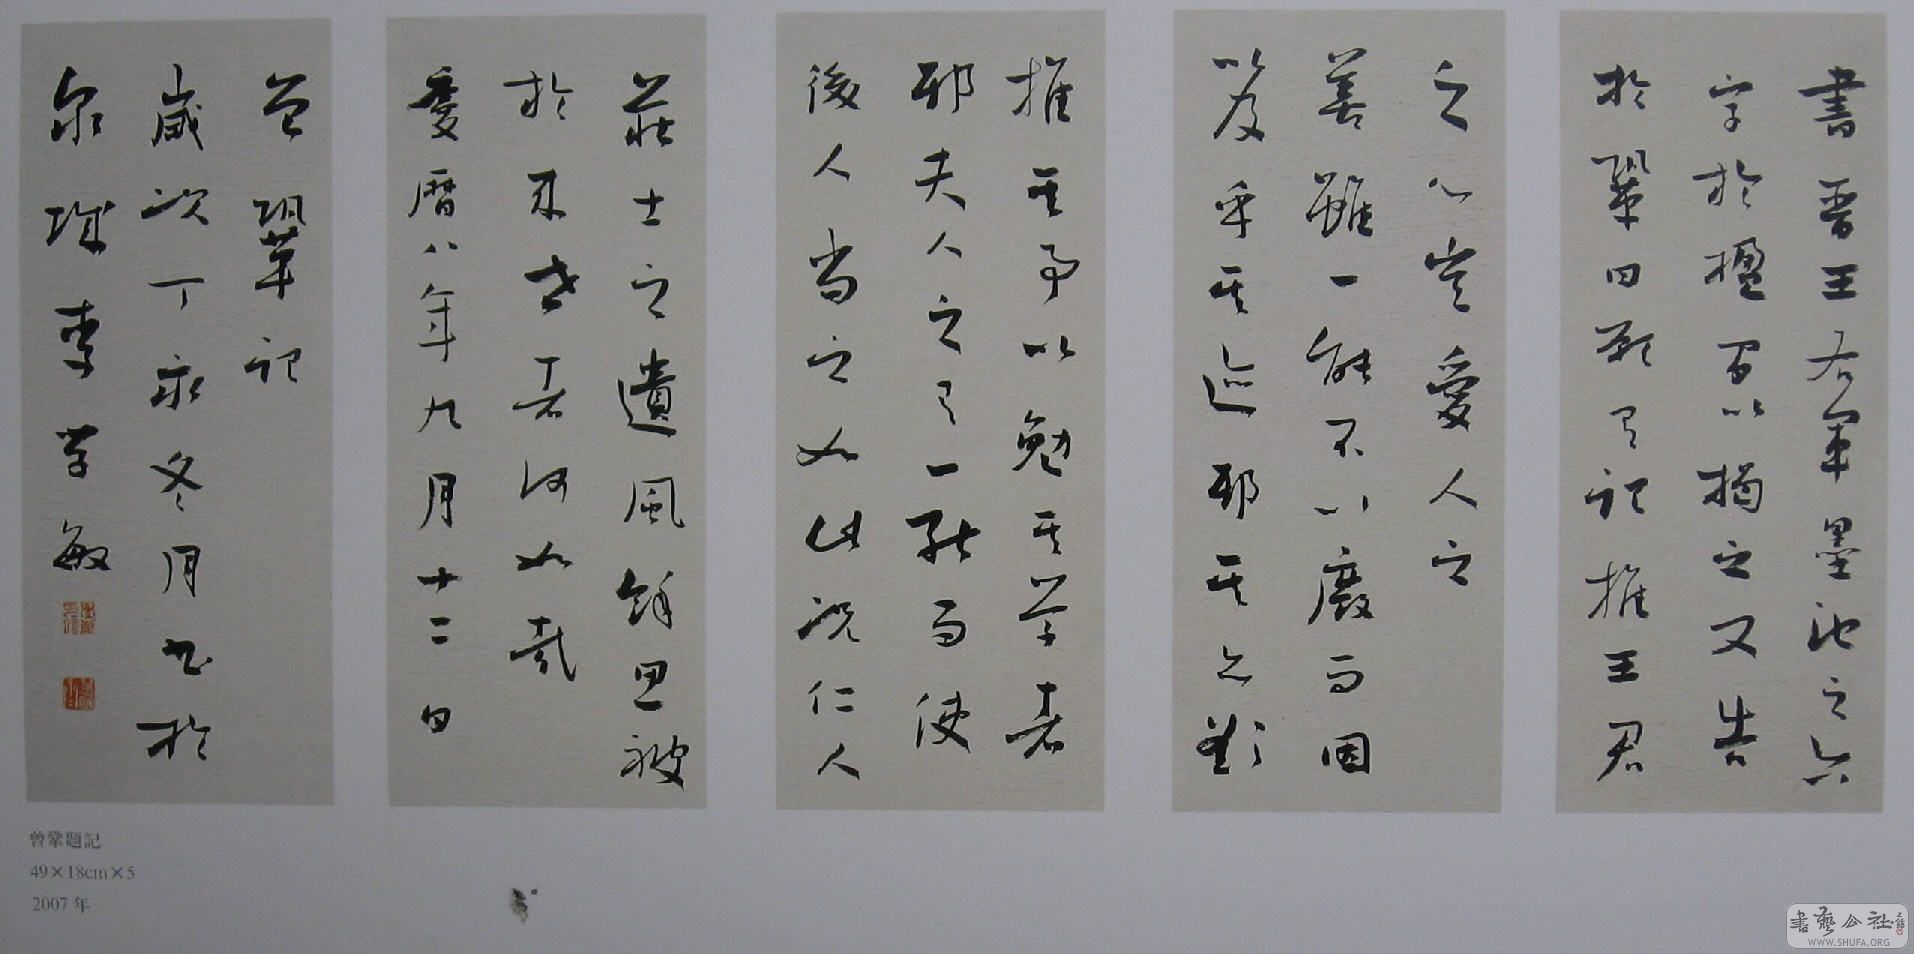 書晉王右軍墨池之六
字於楹間以揭之又告
於鞏曰願有記推王君
之心豈愛人之
善雖一能不以廢而因
以及乎其迹邪其亦欲
推其事以勉其學者
邪夫人之有一能而使
後人尚之如此況仁人
莊士之遺風餘思被
於來世者何如哉
慶曆八年九月十二日
曾鞏記
歲次丁亥冬月書於
泉城李學敏
曾鞏題記
49×18cm×5
2007年
書藝公社
WWW.SHUFA.ORG